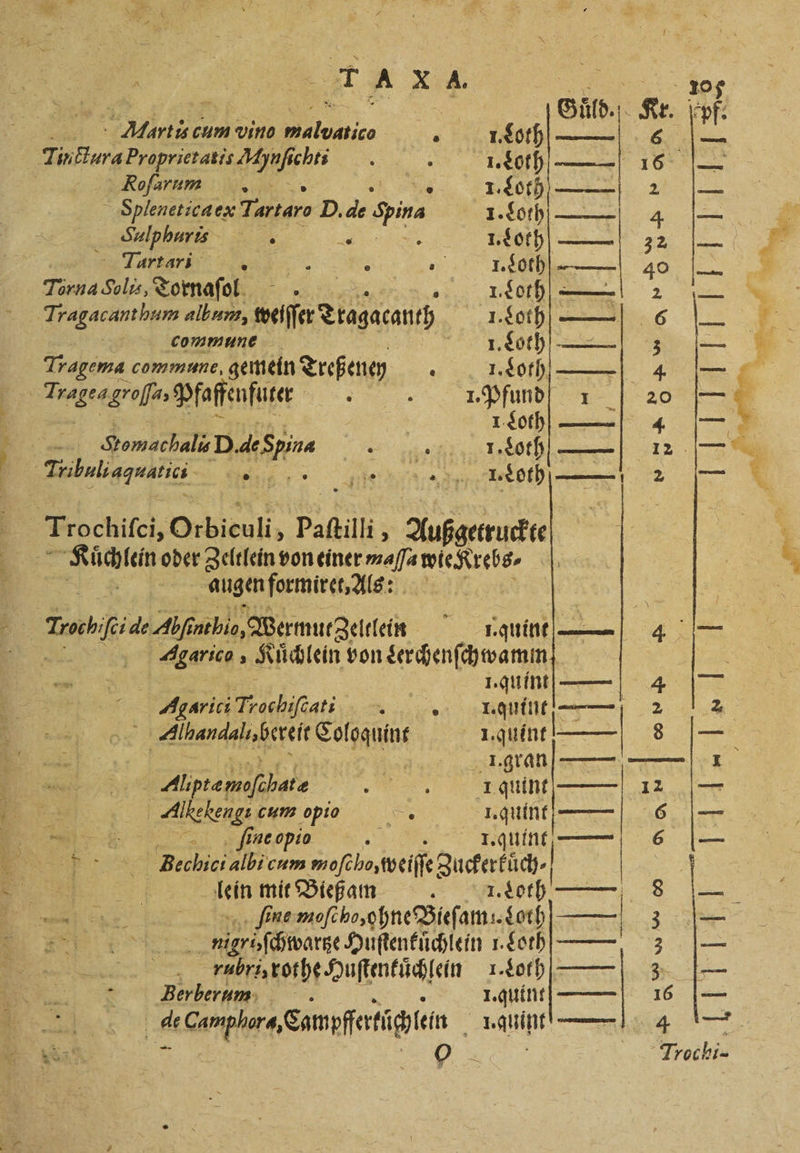 TAXA. 105
Gůld. Kr. pf.
Martis cum vino malvatico . 1.Loth — 6 —
Tinctura Proprietatis Mynsichti . . 1.Loth — 16 —
Rosarum . . . . 1.Loth — 2 —
Splenetica ex Tartaro D. de Spina 1.Loth — 4 —
Sulphuris . . . 1.Loth — 32 —
Tartari . . . . 1.Loth — 40 —
Torna Solis, Tornasol . . . 1.Loth — 2 —
Tragacanthum album, weisser Tragacanth 1.Loth — 6 —
commune 1.Loth — 5 —
Tragema commune, gemein Treßeney . 1.Loth — 4 —
Tragea grossa, Pfaffenfuter . . 1.Pfund 1 20 —
1 Loth — 4 —
Stomachalis D.de Spina . . 1.Loth — 12 —
Tribuli aquatici . . . . 1.Loth — 2 —
Trochisci, Orbiculi, Pastilli, Außgetruckte
Küchlein oder Zeltlein von einer massa wie Krebs-
augen formiret, Als:
Trochisci de Absinthio, Wermut Zeltlein 1.quint — 4 —
Agarico, Küchlein von Lerchenschwamm
1.quint — 4 —
Agarici Trochiscati . . 1.quint — 2 2
Alhandali, bereit Coloquint 1.quint — 8 —
1.gran — — 1
Aliptæ moschatæ . . 1 quint — 12 —
Alkekengi cum opio . 1.quint — 6 —
sine opio . . 1.quint — 6 —
Bechici albi cum moscho, weisse Zuckerküch-
lein mit Bießam . 1.Loth — 8 —
sine moscho, ohne Biesam 1.Loth — 3 —
nigri, schwartze Hustenküchlein 1.Loth — 3 —
rubri, rothe Hustenküchlein 1.Loth — 3 —
Berberum . . . 1.quint — 16 —
de Camphora, Campfferküchlein 1.quint — 4 —
O Trochi-